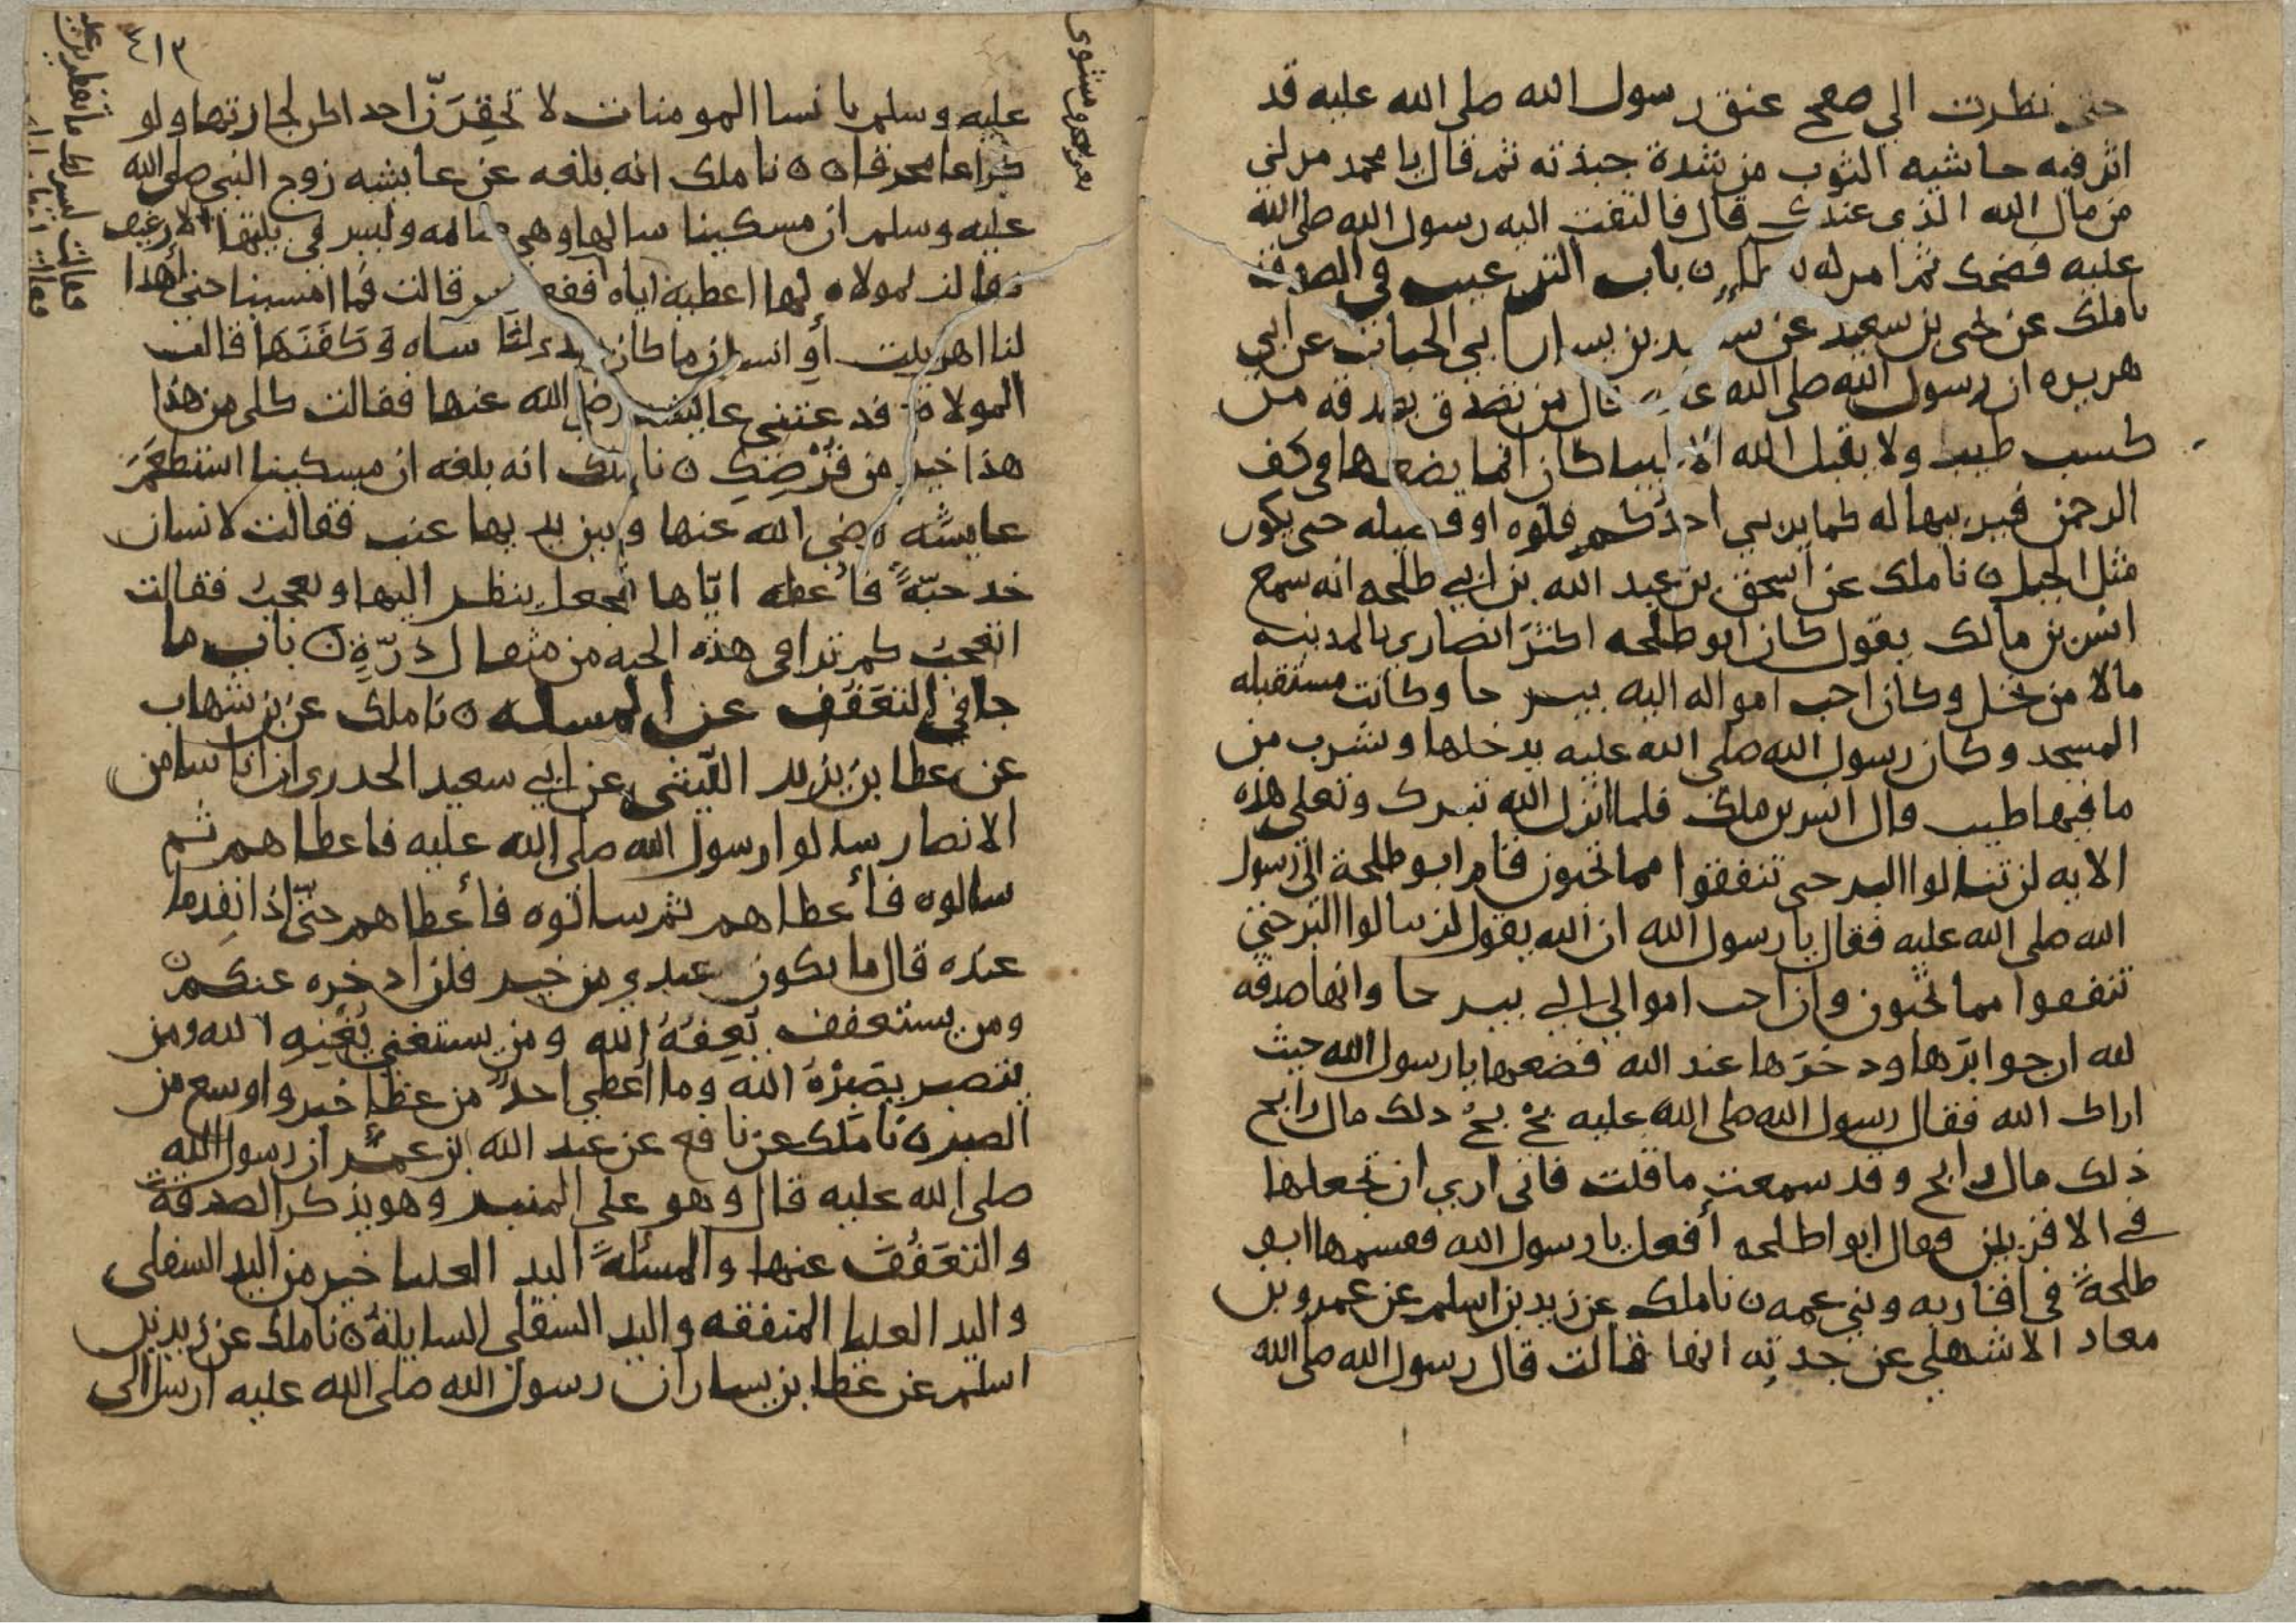 حتى نظرت الي صفح عنق رسول الله صلى الله عليه قد
اثر فيه حاشيه الثوب من شدة جبذته ثم قال يا محمد مر لي
من مال الله الذي عندك قال فالتفت اليه رسول الله صلى الله
عليه فضحك ثم امر له باب الترغيب في الصدقة
نا ملك عن يحيى بن سعيد عن سعيد بن يسار ابي الحباب عن ابي
هريره ان رسول الله صلى الله عليه قال من تصدق بصدقه من
كسب طيب ولا يقبل الله الا طيبا كان انما يضعها في كف
الرحمن فيربيها له كما يربي احدكم فلوه او فصيله حتى يكون
مثل الجبل ن نا ملك عن اسحق بن عبد الله بن ابي طلحه انه سمع
انس بن مالك يقول كان ابو طلحه اكثر انصاري بالمدينه
مالا من نخل وكان احب امواله اليه بير حا وكانت مستقبله
المسجد وكان رسول الله صلى الله عليه يدخلها ويشرب من
ما فيها طيب قال انس بن ملك فلما انزل الله تبرك وتعلى هذه
الايه لن تنالوا البر حتى تنفقوا مما تحبون قام ابو طلحة الى رسول
الله صلى الله عليه فقال يا رسول الله ان الله يقول لن تنالوا البر حتى
تنفقوا مما تحبون وان احب اموالي الي بير حا وانها صدقه
لله ارجوا برها ودخرها عند الله فضعها يا رسول الله حيث
اراك الله فقال رسول الله صلى الله عليه بخ بخ دلك مال رابح
ذلك مال رابح وقد سمعت ما قلت فاني اري ان تجعلها
في الاقربين فقال ابوا طلحه أفعل يا رسول الله فقسمها ابو
طلحة في اقاربه وبني عمه ن نا ملك عن زيد بن اسلم عن عمرو بن
معاد الاشهلي عن جدته انها قالت قال رسول الله صلى الله
٤١٣
عليه وسلم يا نسا المومنات لا تحقرن احداكن لجارتها ولو
كراعا محرقا ن ن نا ملك انه بلغه عن عايشه زوج النبي صلى الله
عليه وسلم ان مسكينا سالها وهي صامه وليس في بيتها الا رغيف
فقالت لمولاه لها اعطيه اياه ففعلت قالت فما امسينا حتى أهدا
لنا اهل بيت أو انسان ما كان يهدي لنا شاه وكفنها قالت
المولاة فدعتني عايشه رضي الله عنها فقالت كلي من هذا
هذا خير من قرصك ن نا ملك انه بلغه ان مسكينا استطعم
عايشه رضي الله عنها وبين يديها عنب فقالت لانسان
خد حبة فأعطه اياها فجعل ينظر اليها ويعجب فقالت
اتعجب كم ترا في هذه الحبه من مثقال ذرة ن باب ما
جا في التعفف عن المسله ن نا ملك عن بن شهاب
عن عطا بن يزيد الليثي عن ابي سعيد الحدري ان اناسا من
الانصار سالوا رسول الله صلى الله عليه فاعطاهم ثم
سالوه فأعطاهم ثم سالوه فأعطاهم حتى اذا نفد ما
عنده قال ما يكون عندي من خير فلن ادخره عنكم
ومن يستعفف يعفه الله ومن يستغني يغنه الله ومن
يتصبر يصبره الله وما اعطي احد من عطا خير واوسع من
الصبر ن نا ملك عن نافع عن عبد الله ابن عمر ان رسول الله
صلى الله عليه قال وهو على المنبر وهو يذكر الصدقة
والتعفف عنها والمسئلة اليد العليا خير من اليد السفلى
واليد العليا المنفقه واليد السفلى السايلة ن نا ملك عن زيد بن
اسلم عن عطا بن يسار ان رسول الله صلى الله عليه ارسل الى